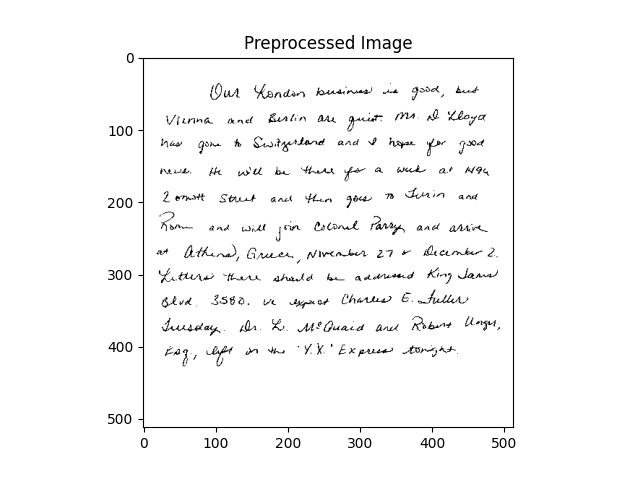 Preprocessed Image
Our London business is good, but
Vienna and Berlin are quiet. Mr. D Lloyd
has gone to Switzerland and I hope for good
news. He will be there for a week at 1496
Zermott Street and then goes to Turin and
Rome and will join Colonel Parry and arrive
at Athens, Greece, November 27 or December 2.
Letters there should be addressed King James
Blvd. 3580. We expect Charles E. Fuller
Tuesday. Dr. L. McQuaid and Robert Unger,
Esq., left on the 'Y.X.' Express tonight.
0
100
200
300
400
500
0 100 200 300 400 500